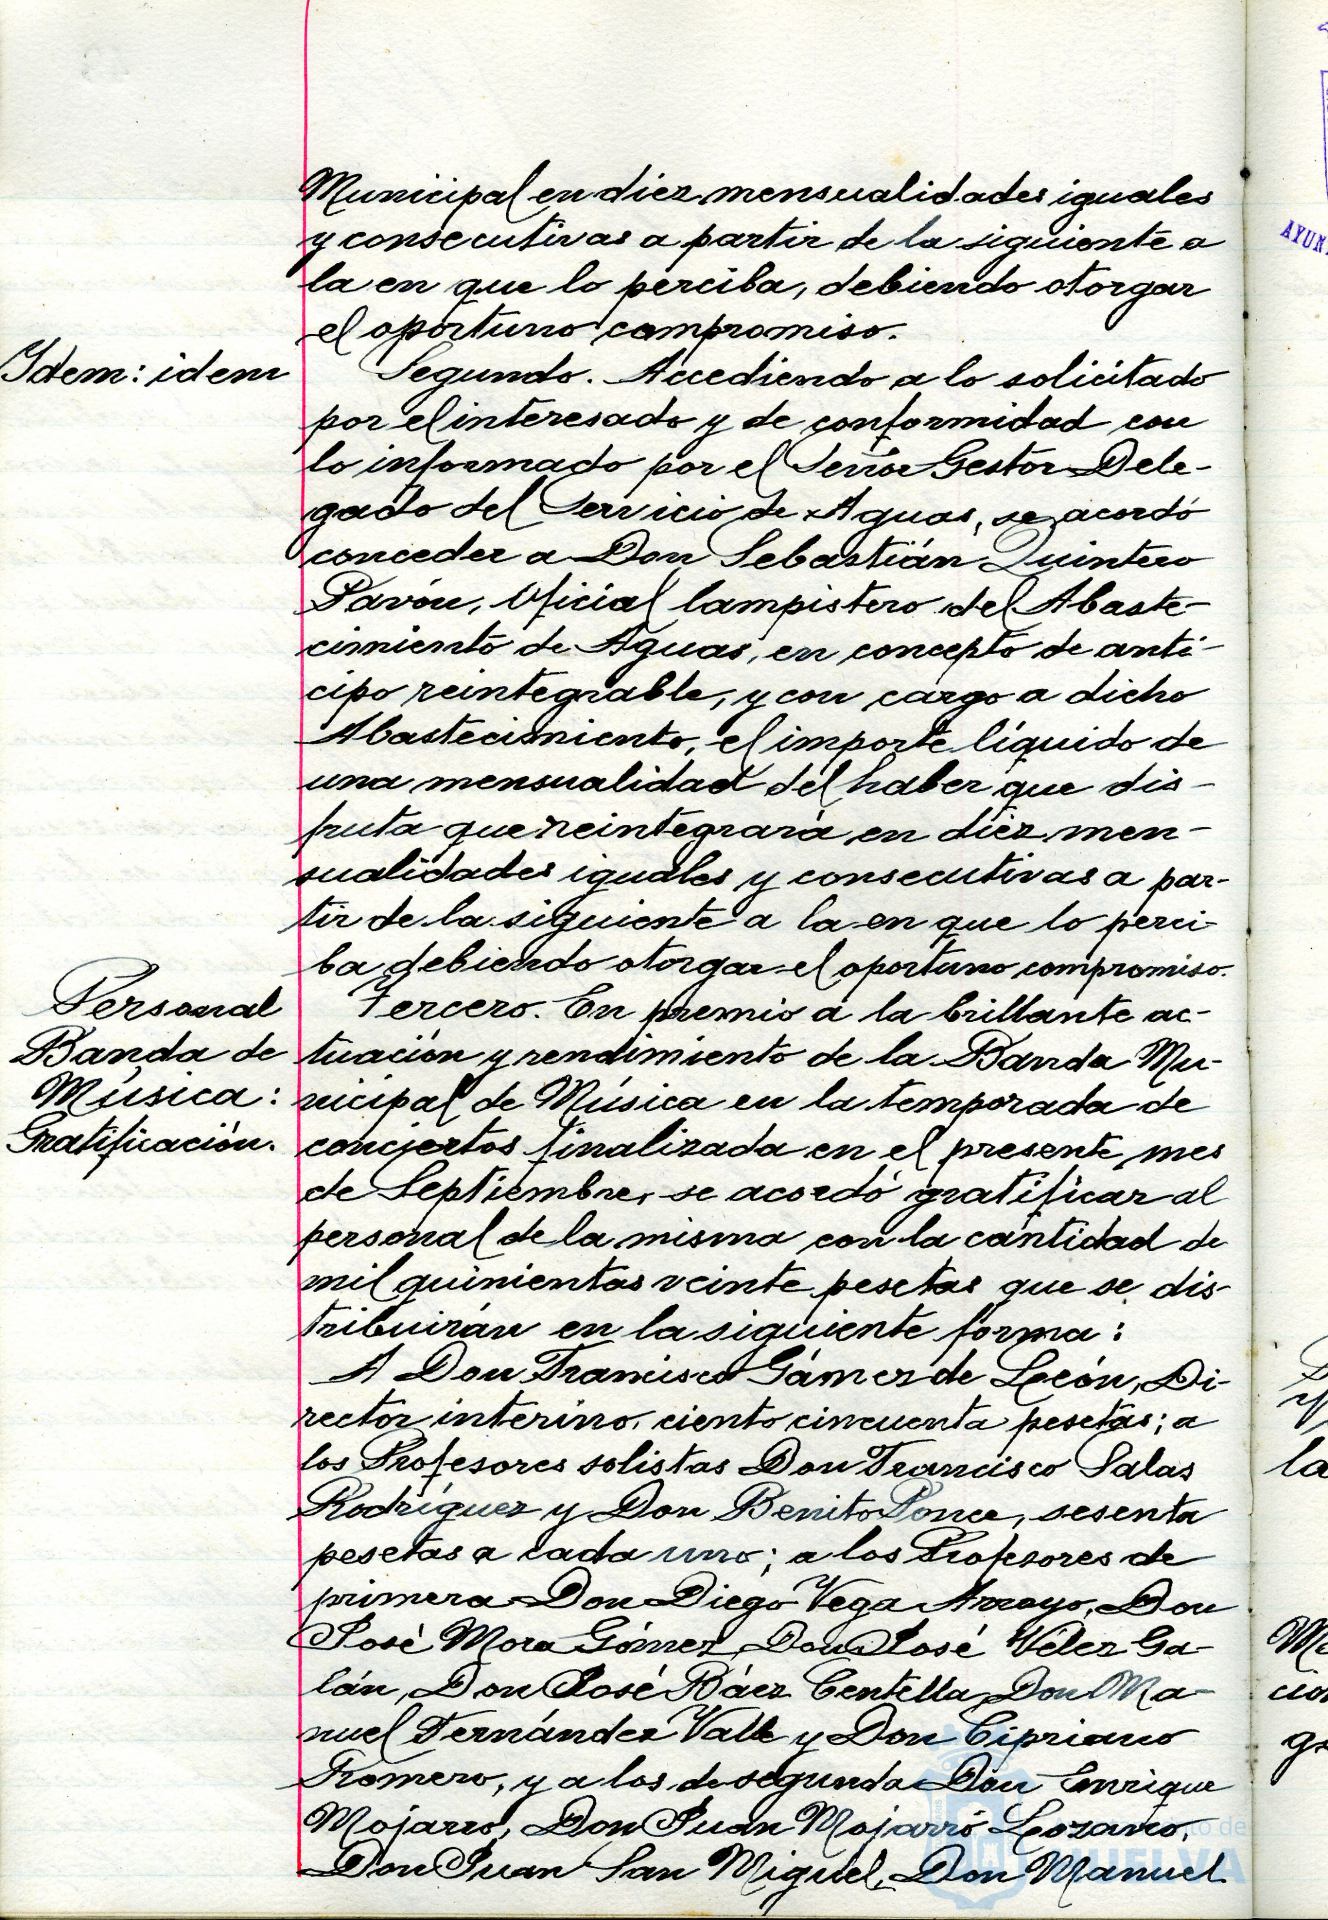 Municipal en diez mensualidades iguales
y consecutivas a partir de la siguiente a
la en que lo perciba, debiendo otorgar
el oportuno compromiso.
Idem: idem
Segundo. Accediendo a lo solicitado
por el interesado y de conformidad con
lo informado por el Señor Gestor Dele-
gado del Servicio de Aguas, se acordó
conceder a Don Sebastián Quintero
Pavón, Oficial lampistero del Abaste-
cimiento de Aguas, en concepto de anti-
cipo reintegrable, y con cargo a dicho
Abastecimiento, el importe líquido de
una mensualidad del haber que dis-
fruta que reintegrará en diez men-
sualidades iguales y consecutivas a par-
tir de la siguiente a la en que lo perci-
ba debiendo otorgar el oportuno compromiso.
Personal
Banda de
Música:
Gratificación.
Tercero. En premio a la brillante ac-
tuación y rendimiento de la Banda Mu-
nicipal de Música en la temporada de
conciertos finalizada en el presente mes
de Septiembre, se acordó gratificar al
personal de la misma con la cantidad de
mil quinientas veinte pesetas que se dis-
tribuirán en la siguiente forma:
A Don Francisco Gámez de León, Di-
rector interino, ciento cincuenta pesetas; a
los Profesores solistas Don Francisco Salas
Rodríguez y Don Benito Ponce, sesenta
pesetas a cada uno; a los Profesores de
primera Don Diego Vega Arroyo, Don
José Mora Gómez, Don José Vélez Ga-
lán, Don José Báez Centella, Don Ma-
nuel Fernández Valle y Don Cipriano
Romero, y a los de segunda Don Enrique
Mojarro, Don Juan Mojarro Lozano,
Don Juan San Miguel, Don Manuel
HUELVA